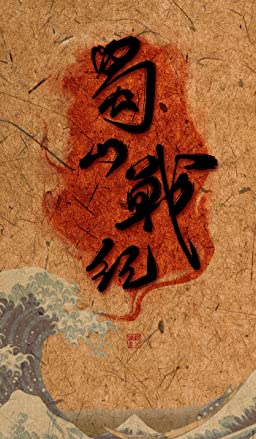 蜀山戰紀